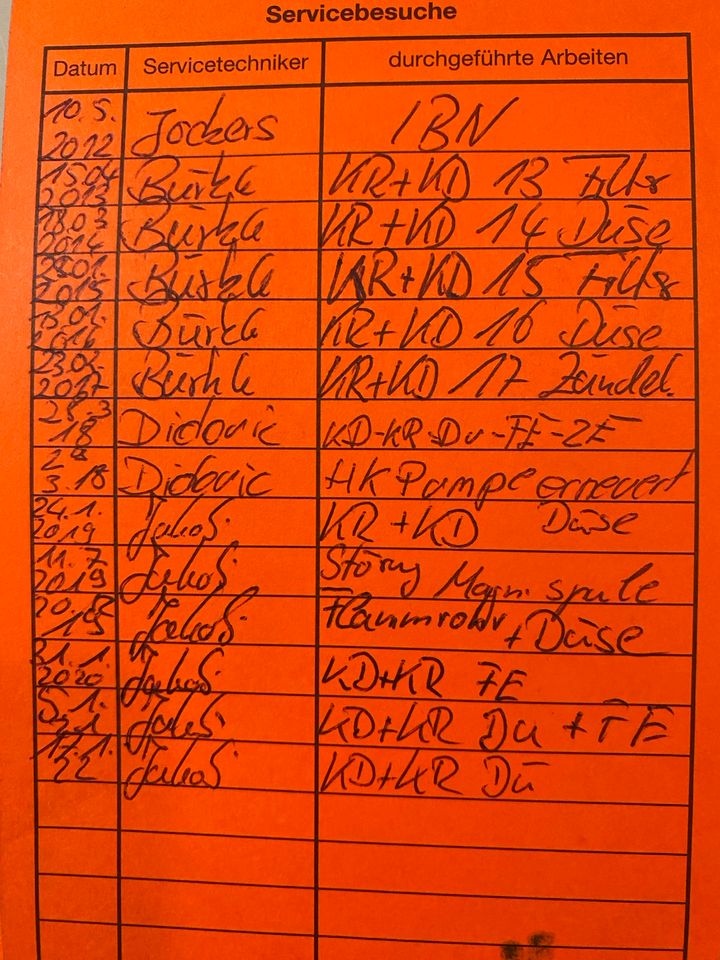 Servicebesuche
Datum Servicetechniker durchgeführte Arbeiten
10.5. 2012 Jockers IBN
15.04 2013 Bürkle KR+KD 13 Filter
18.03 2014 Bürkle KR+KD 14 Düse
2015 Bürkle KR+KD 15 Filter
2016 Bürkle KR+KD 16 Düse
23.02. 2017 Bürkle KR+KD 17 Zündel.
18 Didovic KD-KR-Dü-FE-ZE
3.18 Didovic HK Pumpe erneuert
24.1. 2019 Jakob KR + KD Düse
11.7 2019 Jakob Störung Magn. spule
19 Jakob Flammrohr + Düse
31.1. 2020 Jakob KD+KR FE
Jakob KD+KR Dü + FE
17.1. 22 Jakob KD+KR Dü